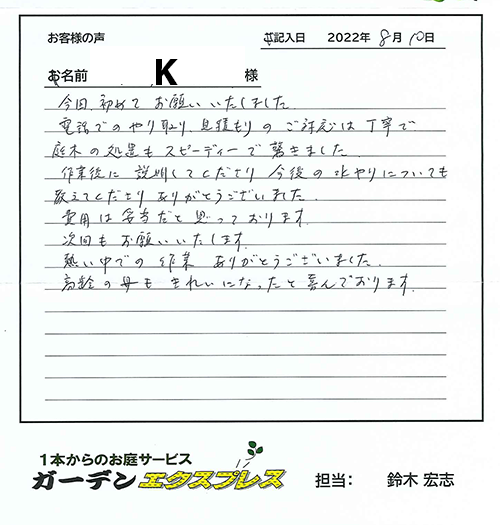 お客様の声
ご記入日 2022年 8月 10日
お名前 K 様
今回、初めて お願いいたしました。
電話でのやり取り、見積もりの ご対応は 丁寧で
庭木の処置も スピーディーで 驚きました。
作業後に 説明してくださり 今後の 水やりについても
教えてくださり ありがとうございました。
費用は 妥当だと 思っております。
次回も お願いいたします。
熱い中での 作業 ありがとうございました。
高齢の母も きれいになったと 喜んでおります。
1本からのお庭サービス
ガーデンエクスプレス 担当: 鈴木 宏志